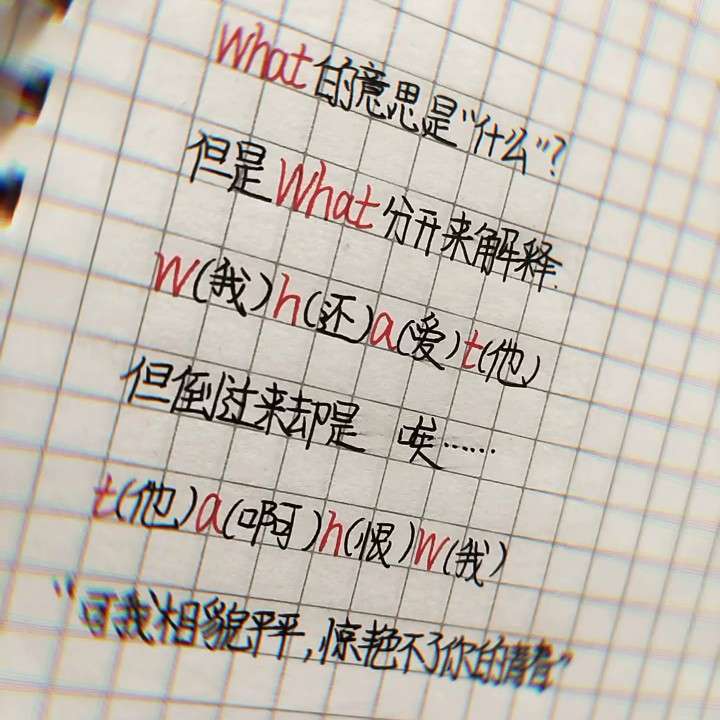 what的意思是"什么"?
但是What分开来解释.
w(我)h(还)a(爱)t(他)
但倒过来却是 唉……
t(他)a(啊)h(恨)w(我)
"可我相貌平平,惊艳不了你的青春"